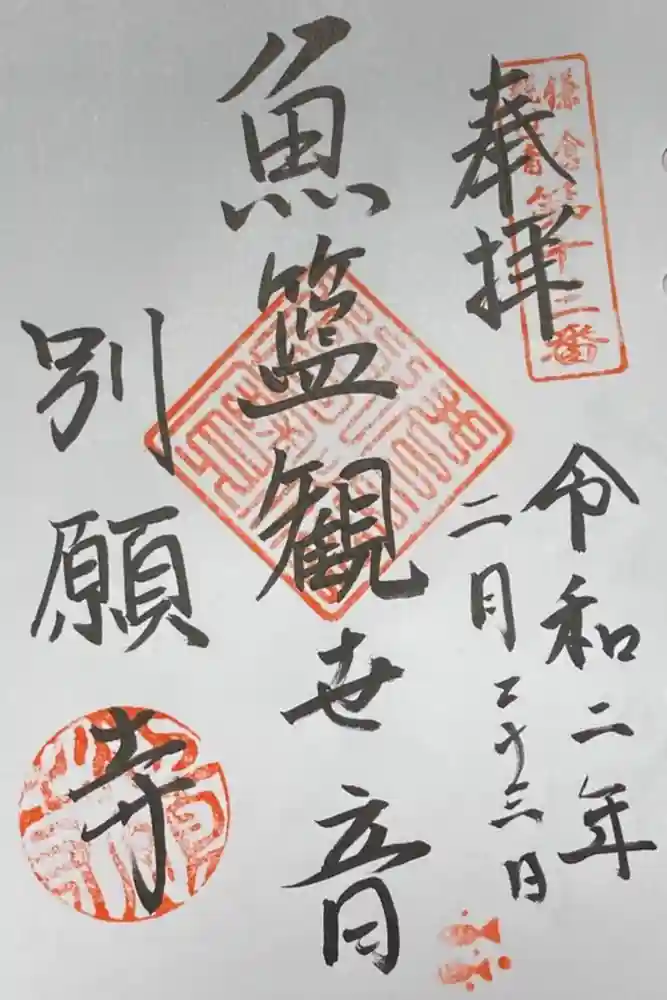 奉拝
鎌倉
第十三番
令和二年
二月二十三日
魚籃観世音
別願寺